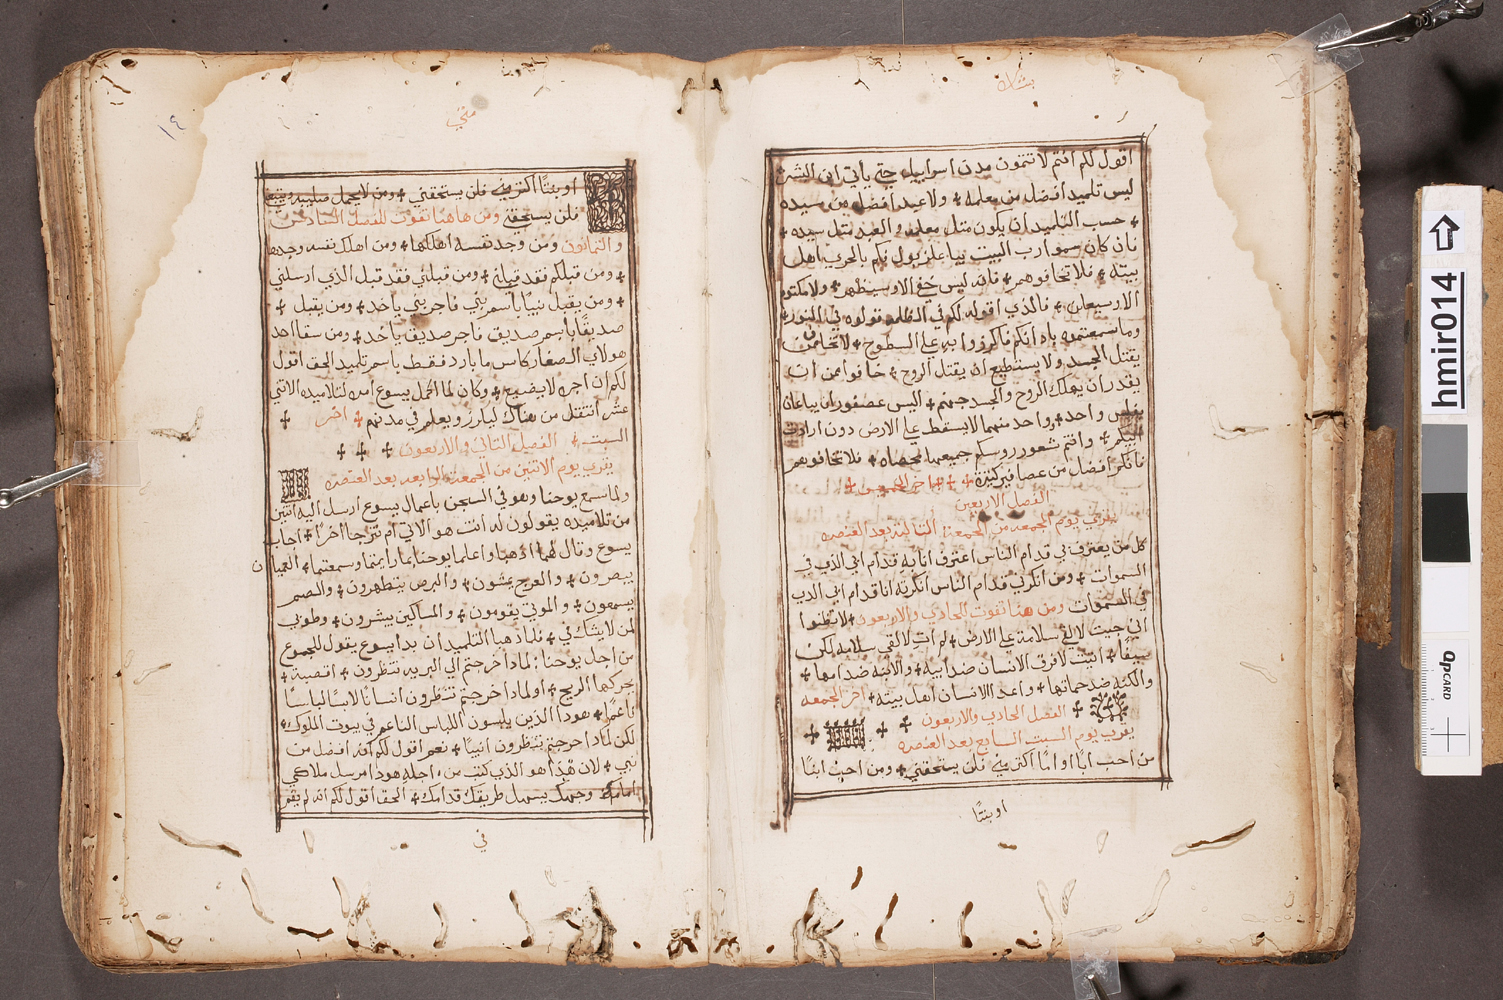 بشاره
اقول لكم انتم لا تتمون مدن اسراييل حتي ياتي ابن البشر
ليس تلميد افضل من معلمه ولا عبد افضل من سيده
حسب التلميد ان يكون متل معلمه و العبد متل سيده
فان كان سموا رب البيت بباعلزبول فكم بالحري اهل
بيته فلا تخافوهم فانه ليس خفي الا وسيظهر ولا مكتوم
الا سيعلن فالذي اقوله لكم في الظلمه قولوه في النور
وما سمعتموه باذانكم فاكرزوا به علي السطوح لا تخافو ممن
يقتل الجسد ولا يستطيع ان يقتل الروح خافوا ممن
يقدر ان يهلك الروح والجسد جهنم اليس عصفوران يباعان
بفلس واحد وواحد منهما لا يسقط علي الارض دون ارادة
ابيكم وانتم شعور روسكم جميعها محصاه فلا تخافوهم
فانكم افضل من عصافير كتيرة اخر الخميس
الفصل الاربعين
يقري يوم الجمعه من الجمعة التالته بعد العنصره
كل من يعترف بي قدام الناس اعترف انا به قدام ابي الذي في
السموات ومن انكرني قدام الناس انكرته انا قدام ابي الدي
في السموات ومن هنا تفوت الحادي والاربعون لا تظنوا
اني جيت لالقي سلامة علي الارض لم ات لالقي سلامه لكن
سيفا اتيت لافرق الانسان ضد ابيه والابنه ضد امها
والكنه ضد حماتها واعدا الانسان اهل بيته اخر الجمعه
الفصل الحادي والاربعون
يقري يوم السبت السابع بعد العنصره
من احب ابا او اما اكتر مني فلن يستحقني ومن احب ابنا
او بنتا
متي
١٤
او بنتا اكتر مني فلن يستحقني ومن لا يحمل صليبه ويتبعني
فلن يستحقني ومن هاهنا تفوت للفصل السادس
و التمانون ومن وجد نفسه اهلكها ومن اهلك نفسه وجدها
ومن قبلكم فقد قبلني ومن قبلني فقد قبل الذي ارسلني
ومن يقبل نبيا باسم نبي فاجر نبي ياخد ومن يقبل
صديقا باسم صديق فاجر صديق ياخد ومن سقا احد
هولاي الصغار كاس ما بارد فقط باسم تلميد الحق اقول
لكم ان اجره لا يضيع وكان لما اكمل يسوع امره لتلاميده الاتني
عشر انتقل من هناك ليكرز ويعلم في مدنهم اخر
السبت الفصل التاني والاربعون
يقري يوم الاتنين من الجمعة الرابعه بعد العنصره
ولما سمع يوحنا وهو في السجن باعمال يسوع ارسل اليه اتنين
من تلاميده يقولون له انت هو الاتي ام نترجا اخر اجاب
يسوع وقال لهما اذهبا واعلما يوحنا بما رايتما وسمعتما العميان
يبصرون والعرج يمشون والبرص يتطهرون والصم
يسمعون والموتي يقومون والمساكين يبشرون وطوبي
لمن لا يشك في فلما ذهبا التلميدان بدا يسوع يقول للجموع
من اجل يوحنا لمادا خرجتم الي البريه تنظرون اقصبة
يحركها الريح او لمادا خرجتم تنظرون انسانا لابسا لباسا
ناعما هودا الذين يلبسون اللباس الناعم في بيوت الملوك
لكن لمادا خرجتم تنظرون انبيا نعم اقول لكم انه افضل من
نبي لان هذا هو الذي كتب من اجله هودا مرسل ملاكي
امام وجهك يسهل طريقك قدامك الحق اقول لكم انه لم يقم
في
hmir014
QPCARD